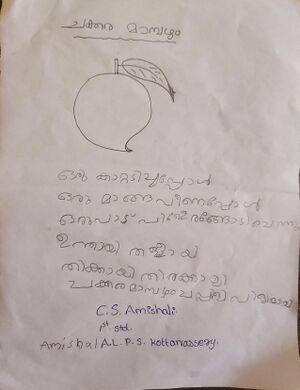 ചക്കര മാമ്പഴം
ഒരു കാറ്റടിച്ചപ്പോൾ
ഒരു മാങ്ങവീണപ്പോൾ
ഒരുപാട്
ഉന്തായി തള്ളായി
തിക്കായി തിരക്കായി
ചക്കരമാമ്പഴം
C.S. Amishali
1st std.
Amishal A.L.P.S. Kottanassery.